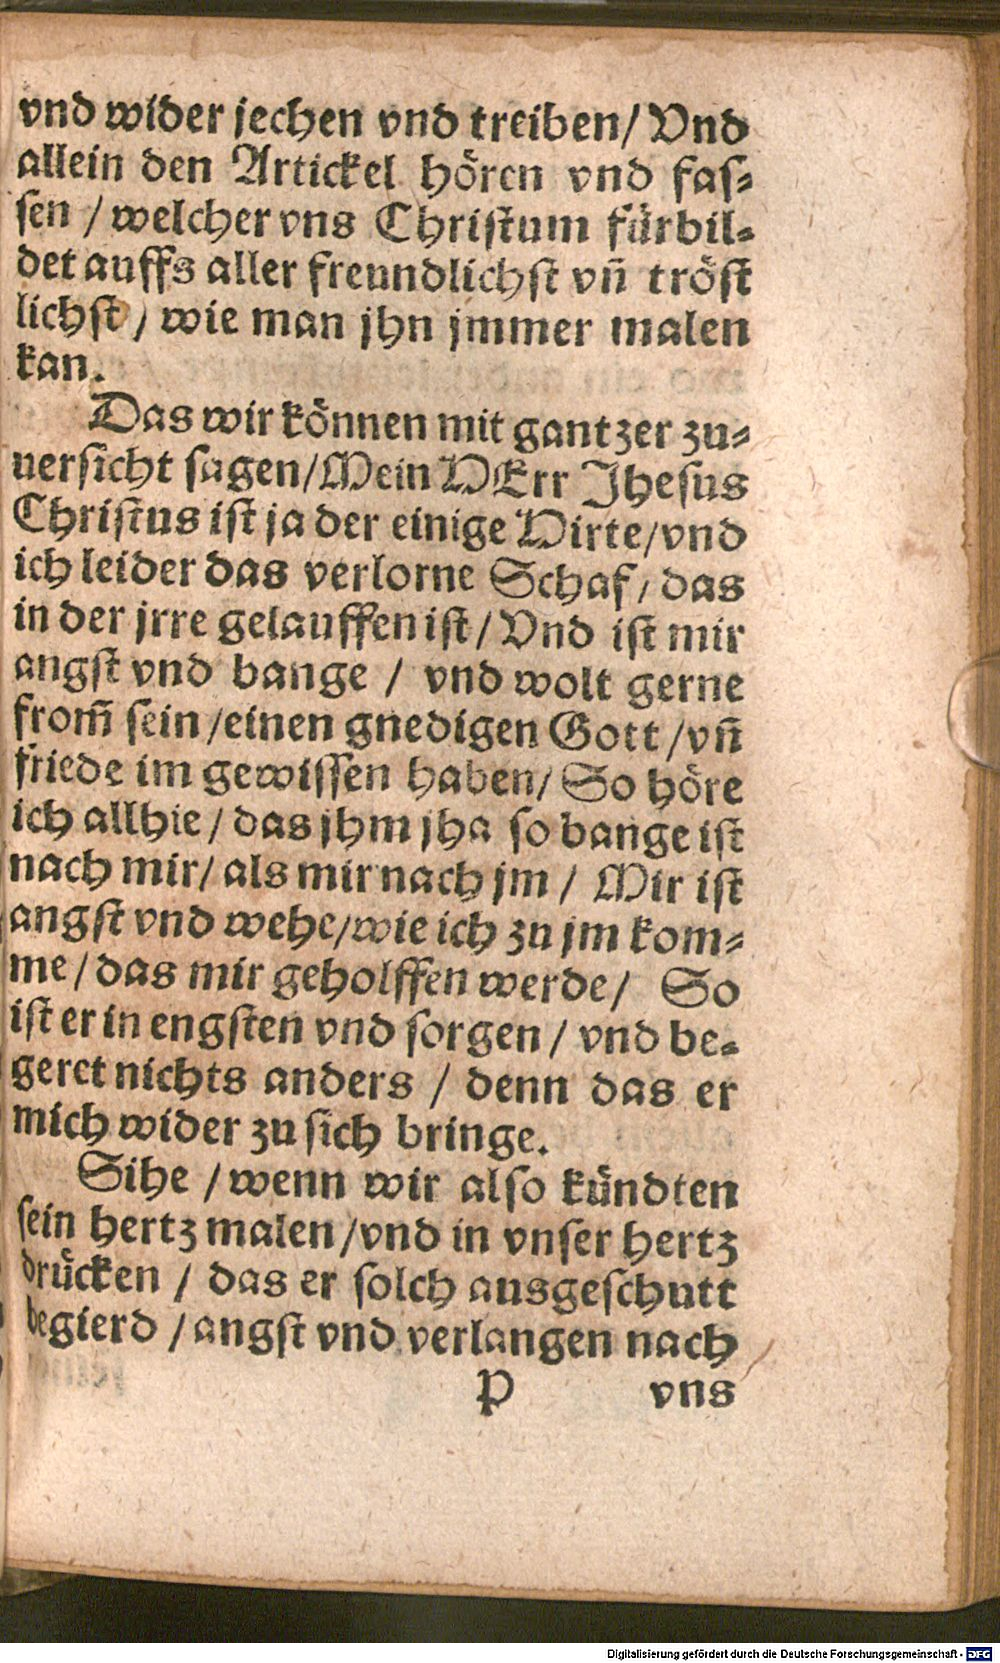 vnd wider jechen vnd treiben/ Vnd
allein den Artickel hören vnd fas⸗
sen / welcher vns Christum fürbil⸗
det auffs aller freundlichst vñ tröst
lichst / wie man jhn jmmer malen
kan.
Das wir können mit gantzer zu⸗
uersicht sagen/ Mein HErr Jhesus
Christus ist ja der einige Hirte/vnd
ich leider das verlorne Schaf/ das
in der jrre gelauffen ist/ Vnd ist mir
angst vnd bange / vnd wolt gerne
from̃ sein /einen gnedigen Gott /vñ
friede im gewissen haben/ So höre
ich allhie / das jhm jha so bange ist
nach mir/ als mir nach jm / Mir ist
angst vnd wehe/wie ich zu jm kom⸗
me / das mir geholffen werde/ So
ist er in engsten vnd sorgen / vnd be⸗
geret nichts anders / denn das er
mich wider zu sich bringe.
Sihe / wenn wir also kündten
sein hertz malen /vnd in vnser hertz
drücken / das er solch ausgeschutt
begierd / angst vnd verlangen nach
P vns
Digitalisierung gefördert durch die Deutsche Forschungsgemeinschaft - DFG